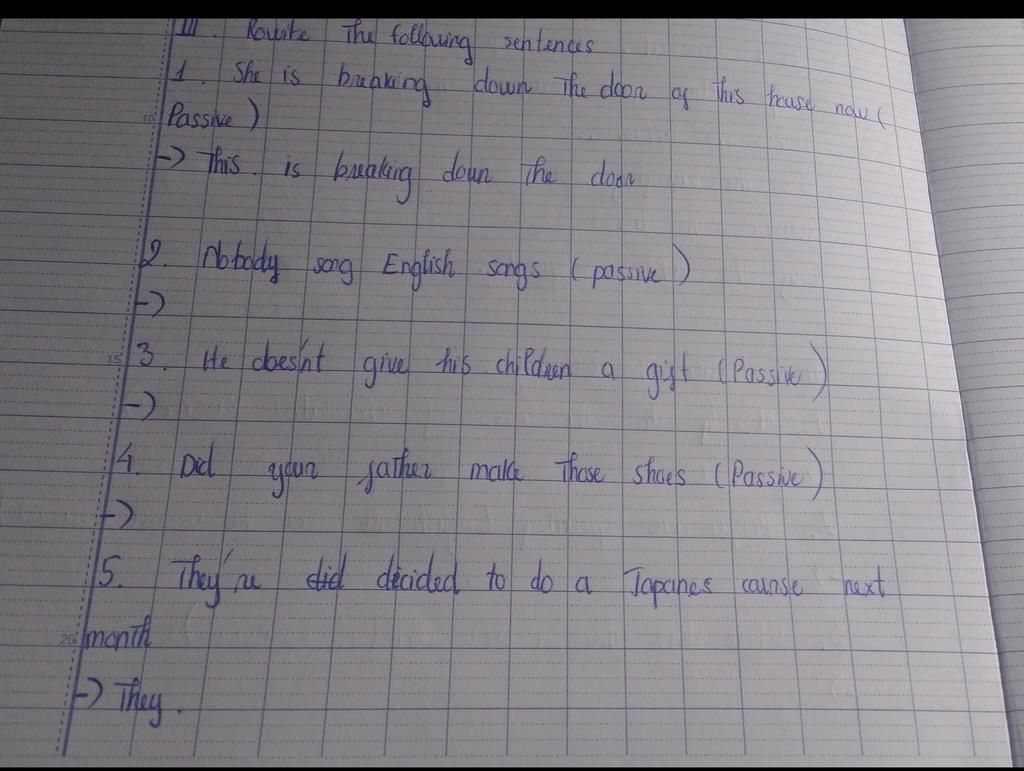 III. Rewite the following sentences
1. She is breaking down the door of this house now (
Passive)
-> This. is breaking down the door
2. Nobody song English songs (passive)
->
3. He does'nt give his children a gift (Passive)
->
4. Did your father make those shoes (Passive)
->
5. They're did decided to do a Japanes course next
month
-> They.